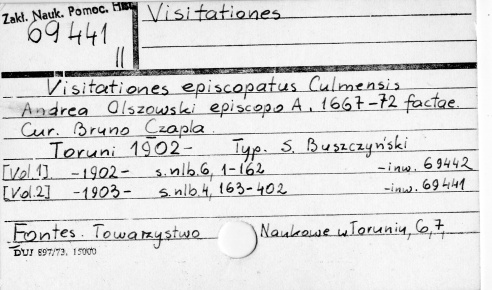 Zakł. Nauk. Pomoc. Hist.
69441
II
Visitationes
Visitationes episcopatus Culmensis
Andrea Olszowski episcopo A. 1667-72 factae.
Cur. Bruno Czapla.
Toruni 1902- Typ. S. Buszczyński
[Vol.1] -1902- s.nlb.6, 1-162 -inw. 69442
[Vol.2] -1903- s.nlb.4, 163-402 -inw. 69441
Fontes. Towarzystwo Naukowe w Toruniu, 6,7,
DUJ 897/73. 15000